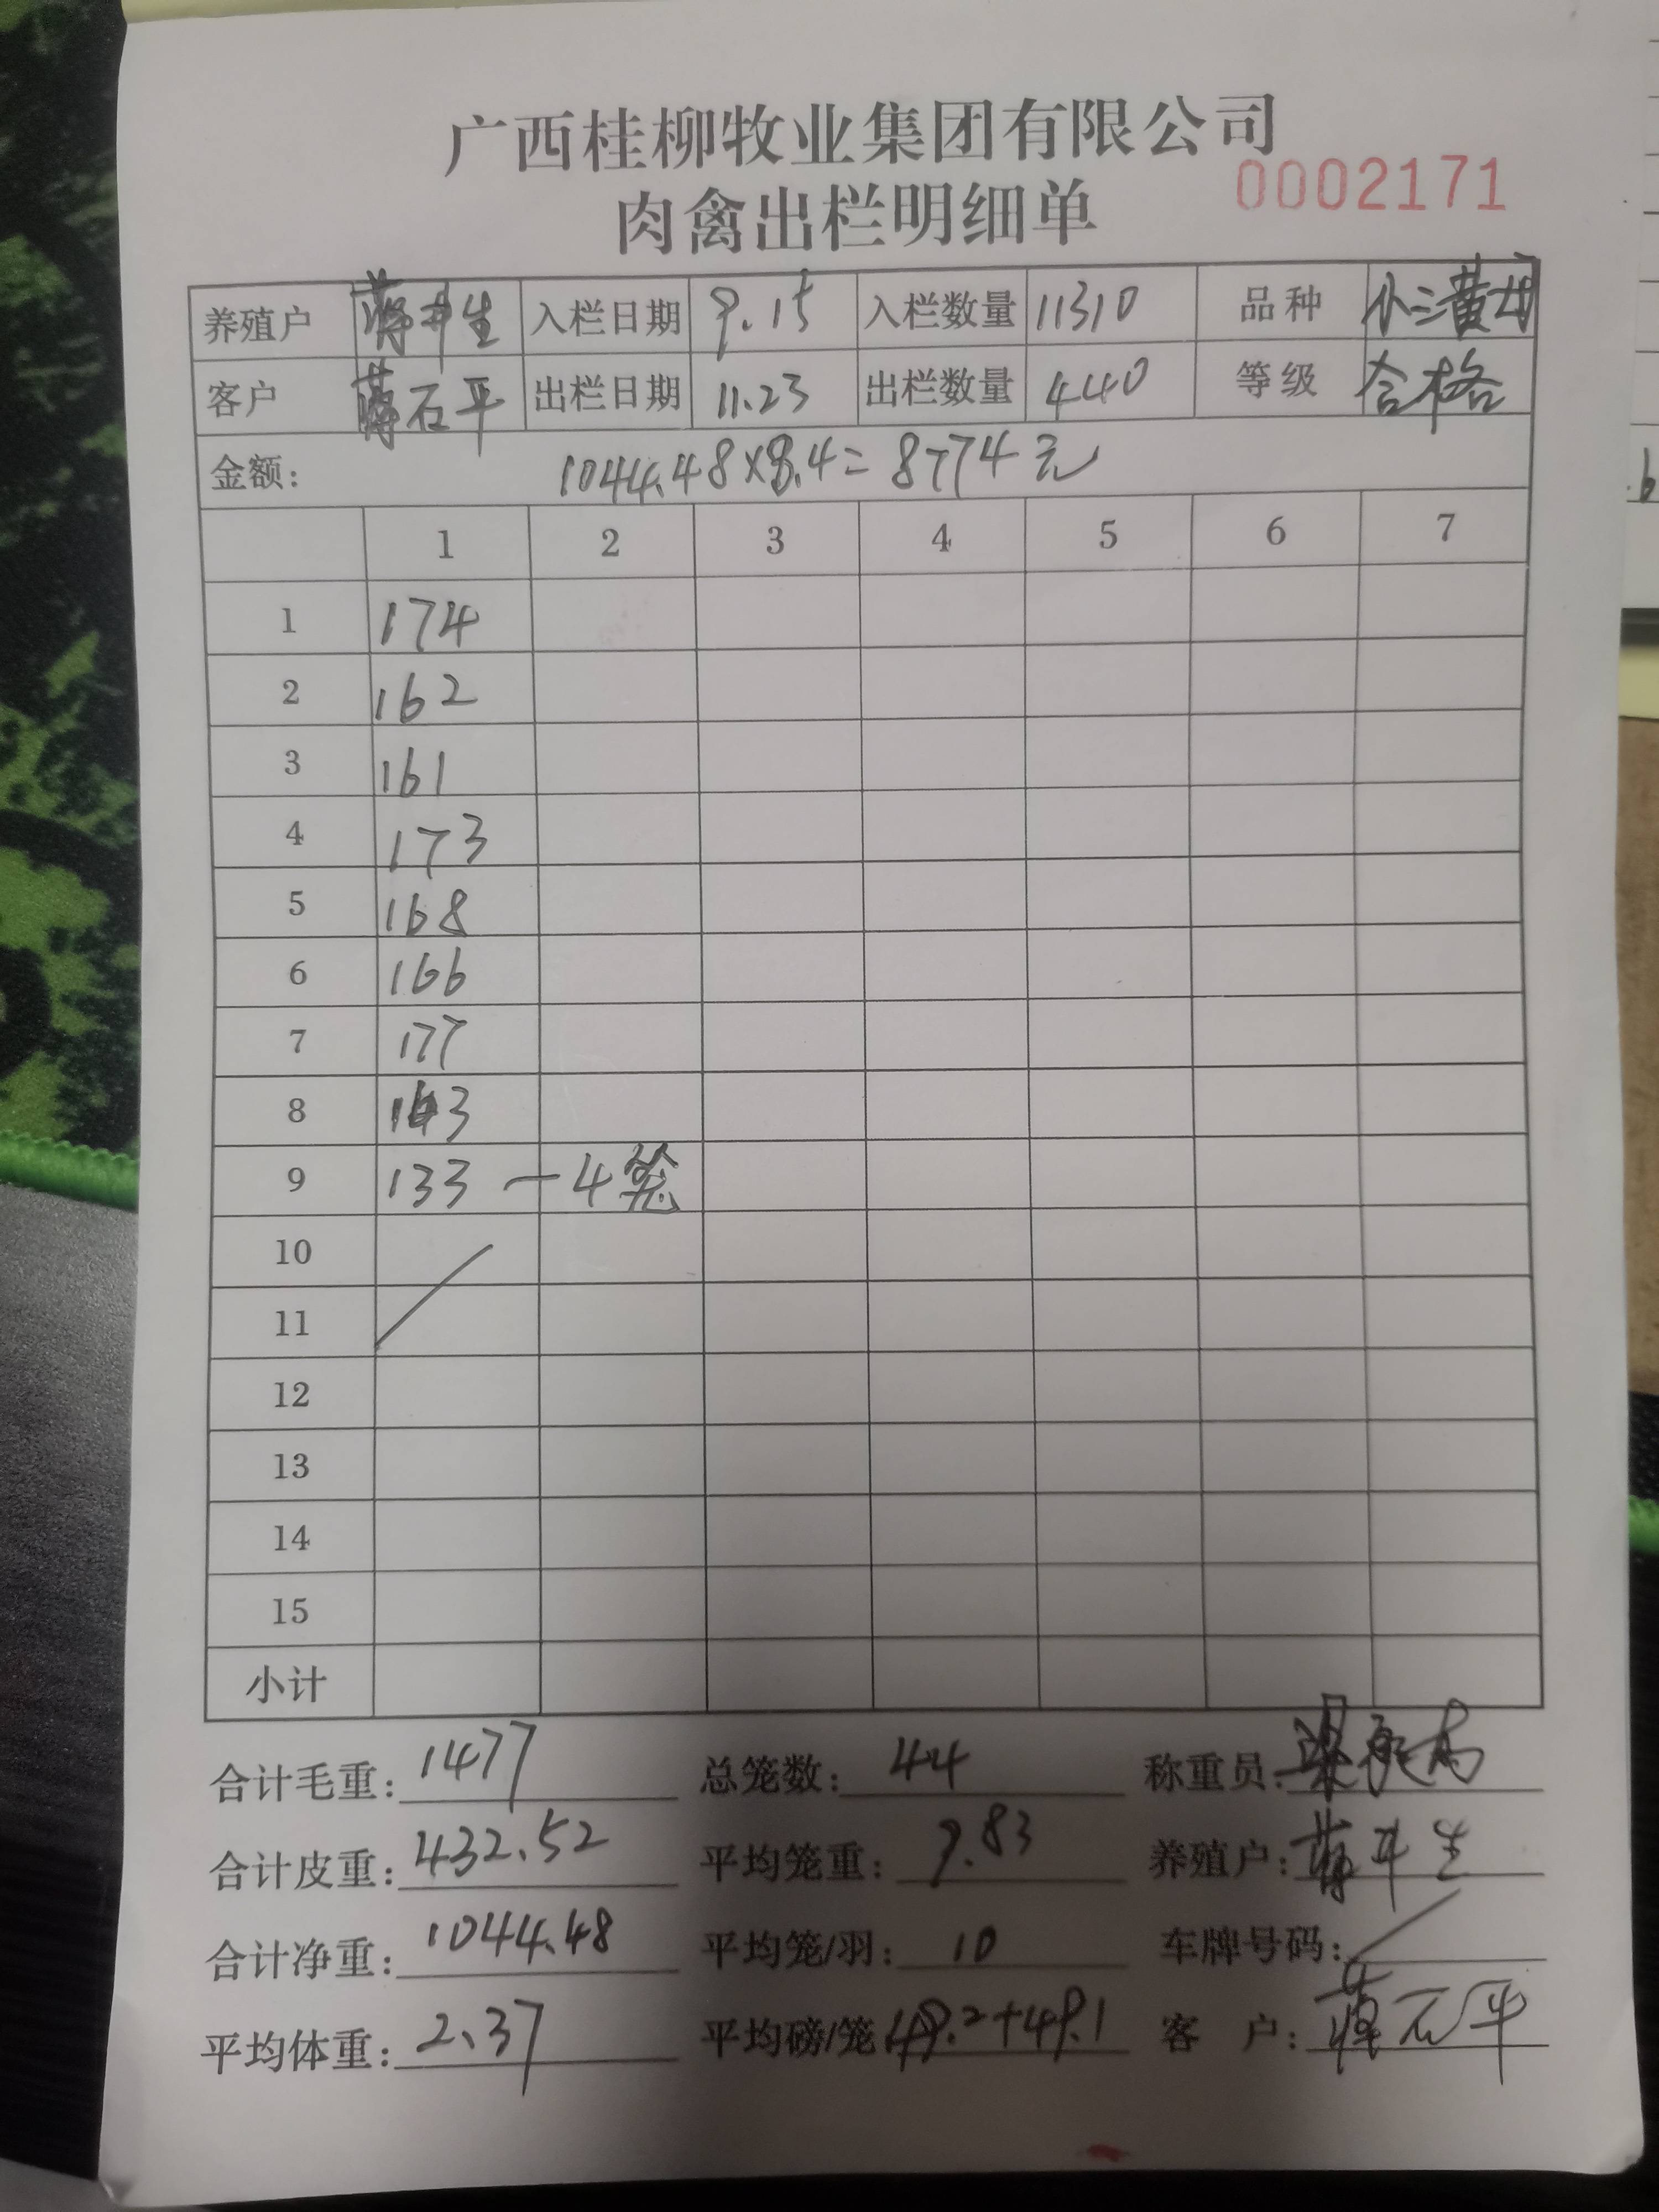 广西桂柳牧业集团有限公司
肉禽出栏明细单
0002171
养殖户 蒋井生 入栏日期 9.15 入栏数量 11310 品种 小三黄母
客户 蒋石平 出栏日期 11.23 出栏数量 440 等级 合格
金额: 1044.48×8.4=8774元
1 2 3 4 5 6 7
1 174
2 162
3 161
4 173
5 168
6 166
7 177
8 163
9 133 — 4笼
10
11
12
13
14
15
小计
合计毛重: 1477 总笼数: 44 称重员:
合计皮重: 432.52 平均笼重: 9.83 养殖户: 蒋井生
合计净重: 1044.48 平均笼/羽: 10 车牌号码:
平均体重: 2.37 平均磅/笼 49.2+49.1 客 户: 蒋石平